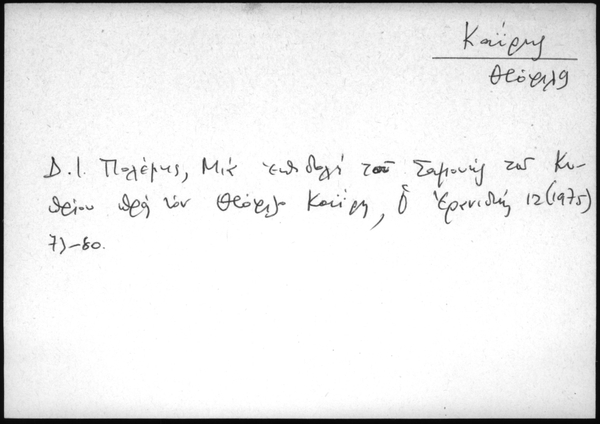 Καΐρης
Θεόφιλος
Δ. Ι. Πολέμης, Μιὰ ἐπιστολὴ τοῦ Σαμουὴλ τοῦ Κυ-
πρίου πρὸς τὸν Θεόφιλο Καΐρη, Ὁ Ἐρανιστής 12 (1975)
-80.